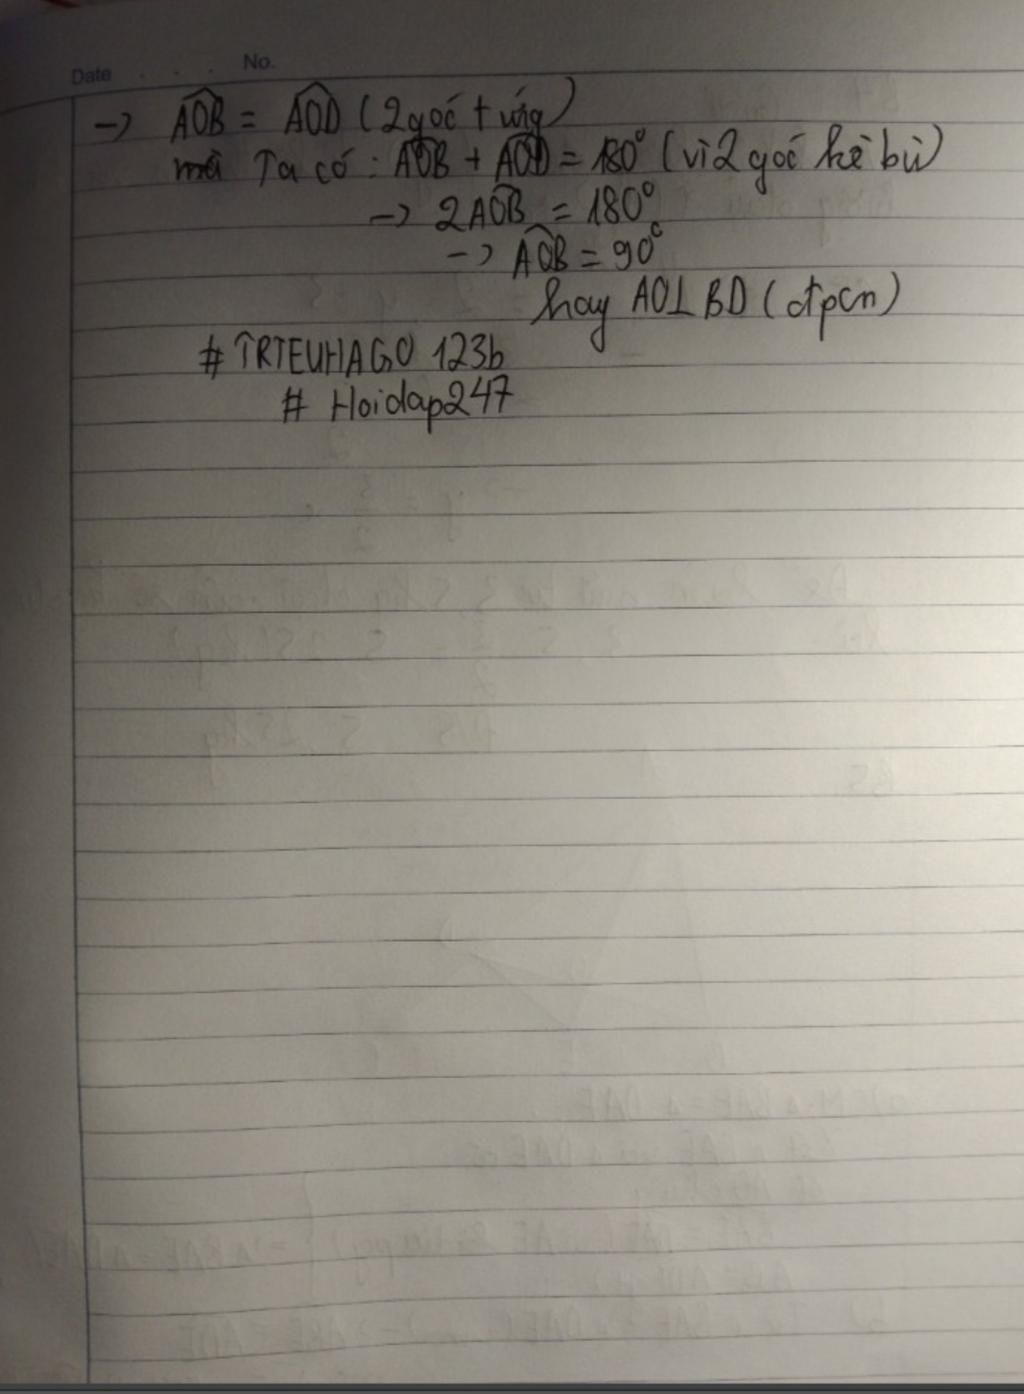 Date . . . No.
→ AOB = AOD (2 goć + ứig)
mà Ta có : AOB + AOD = 180° (vì 2 goć kề bù)
→ 2AOB = 180°
→ AOB = 90°
hay AO⊥BD (đpcm)
# TRTEUHAGO 123b
# Hoidap247